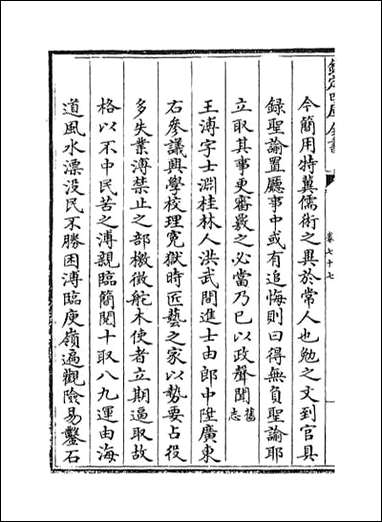 欽定四庫全書
卷七十七
今簡用特冀儒術之異於常人也勉之文到官具
錄聖諭置廳事中或有追悔則曰得無負聖諭耶
立取其事更審覈之必當乃已以政聲聞舊志
王溥字士淵桂林人洪武間進士由郎中陞廣東
右參議興學校理冤獄時匠藝之家以勢要占役
多失業溥禁止之部檄徵舵木使者立期過取故
格以不中民苦之溥親臨簡閱十取八九運由海
道風水漂没民不勝困溥臨庾嶺遍觀險易鑿石